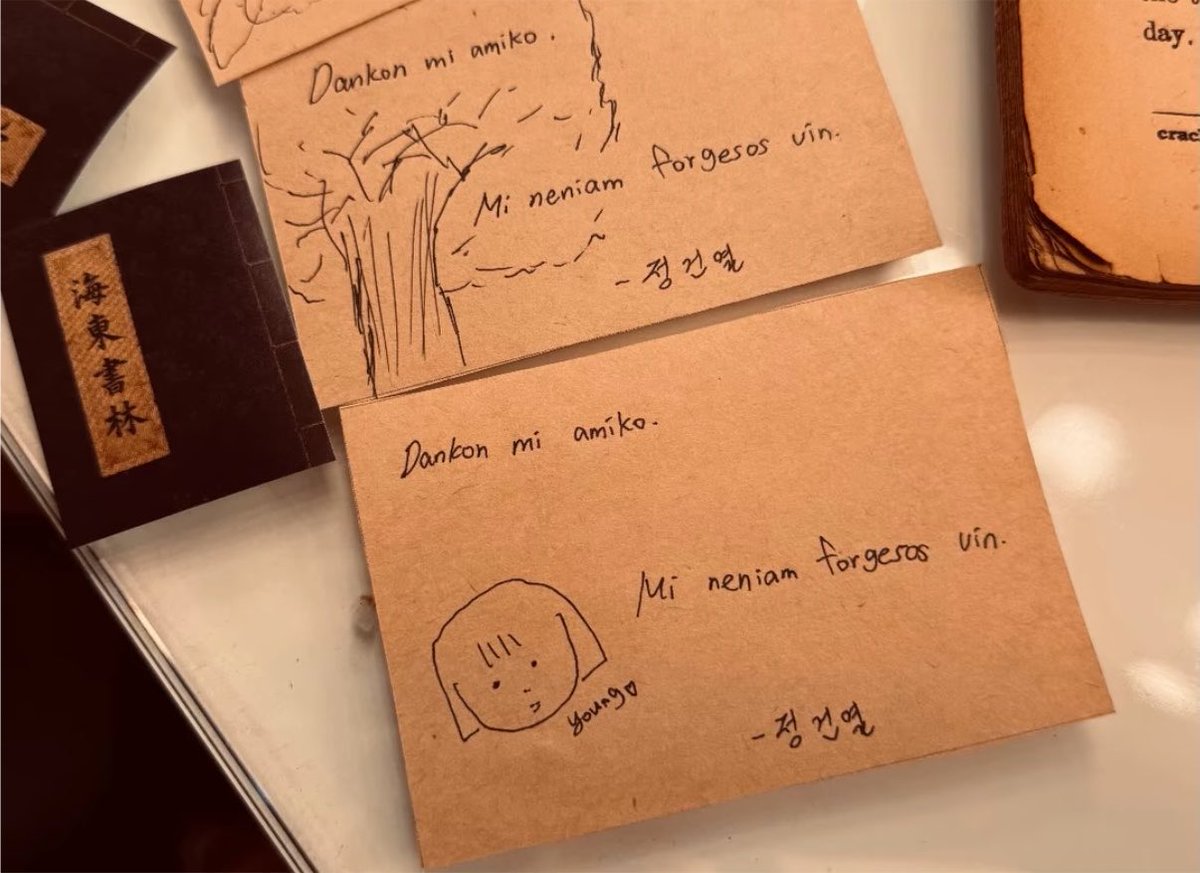 Dankon mi amiko.
Mi neniam forgesos vin.
- 정건열
海東書林
Dankon mi amiko.
Mi neniam forgesos vin.
young♡
- 정건열
day.